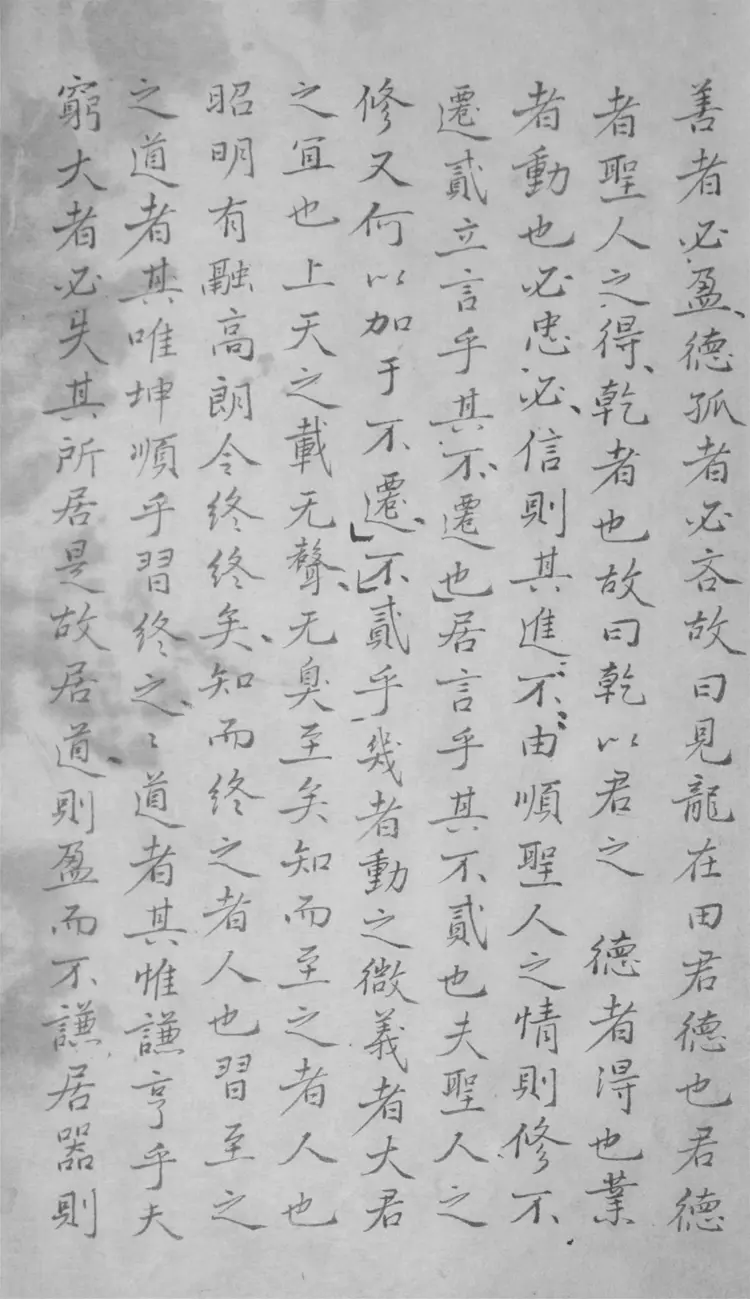 善者必盈德孤者必吝故曰見龍在田君德也君德
者聖人之得乾者也故曰乾以君之 德者得也業
者動也必忠必信則其進不由順聖人之情則修不
遷貳立言乎其不遷也居言乎其不貳也夫聖人之
修又何以加于不遷不貳乎幾者動之微義者大君
之宜也上天之載无聲无臭至矣知而至之者人也
昭明有融高朗令终终矣知而终之者人也習至之
之道者其唯坤順乎習终之〻道者其惟謙亨乎夫
窮大者必失其所居是故居道則盈而不謙居器則